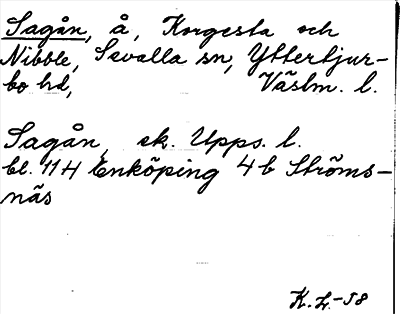 Sagån, å, Korgesta och
Nibble, Sevalla sn, Yttertjur-
bo hd, Västm. l.
Sagån, ek. Upps. l.
bl. 11 H Enköping 4 b Ströms-
näs
K.L.-58